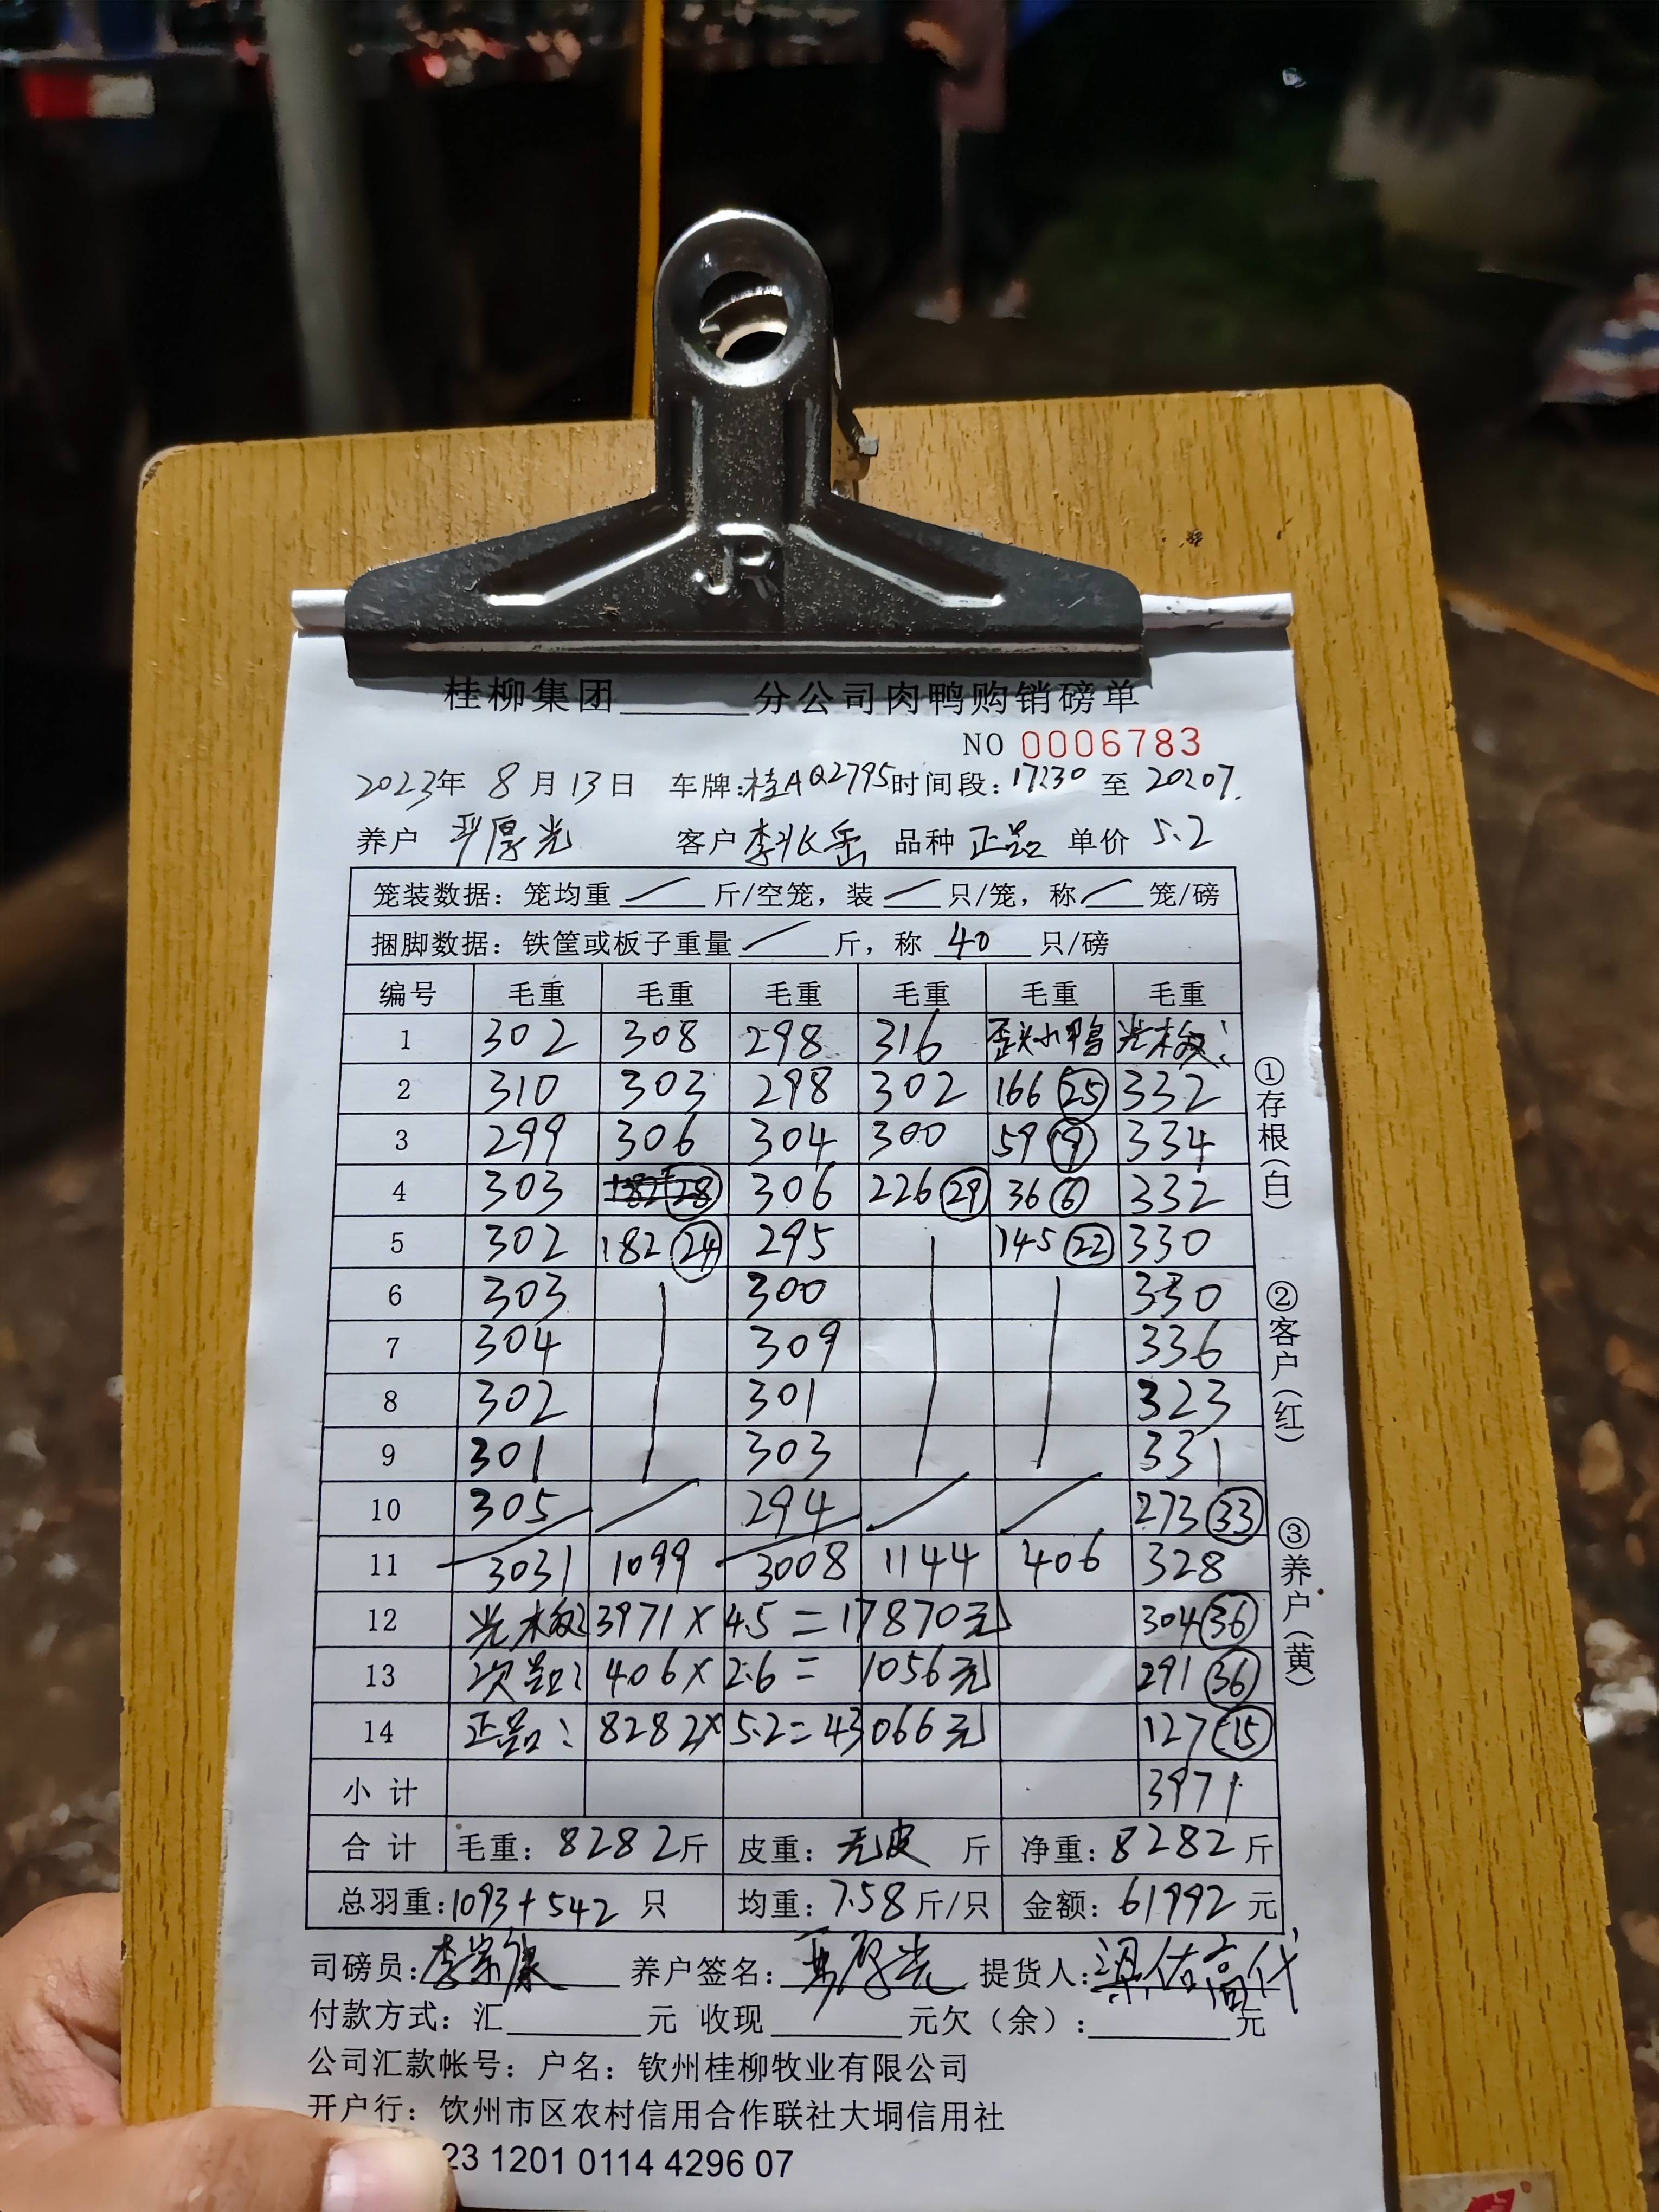 JR
桂柳集团______分公司肉鸭购销磅单
NO 0006783
2023年 8月13日 车牌:桂AQ2795 时间段:17:30 至 20:07.
养户 厚光 客户 李 岳 品种 正品 单价 5.2
笼装数据:笼均重 / 斤/空笼,装 / 只/笼,称 / 笼/磅
捆脚数据:铁筐或板子重量 / 斤,称 40 只/磅
编号 毛重 毛重 毛重 毛重 毛重 毛重
1 302 308 298 316 歪头小鸭
2 310 303 298 302 166 25 332
3 299 306 304 300 59 9 334
4 303 306 226 29 36 6 332
5 302 182 24 295 145 22 330
6 303 300 330
7 304 309 336
8 302 301 323
9 301 303 331
10 305 294 273 33
11 3031 1099 3008 1144 406 328
12 3971×4.5=17870元 304 36
13 次品: 406×2.6= 1056元 291 36
14 正品: 8282×5.2=43066元 127 15
小计 3971
合计 毛重:8282斤 皮重:无皮 斤 净重:8282斤
总羽重:1093+542 只 均重:7.58斤/只 金额:61992元
司磅员:李 康 养户签名: 厚光 提货人: 代
付款方式:汇______元 收现______元欠(余):______元
公司汇款帐号:户名:钦州桂柳牧业有限公司
开户行:钦州市区农村信用合作联社大垌信用社
23 1201 0114 4296 07
①存根(白) ②客户(红) ③养户(黄)